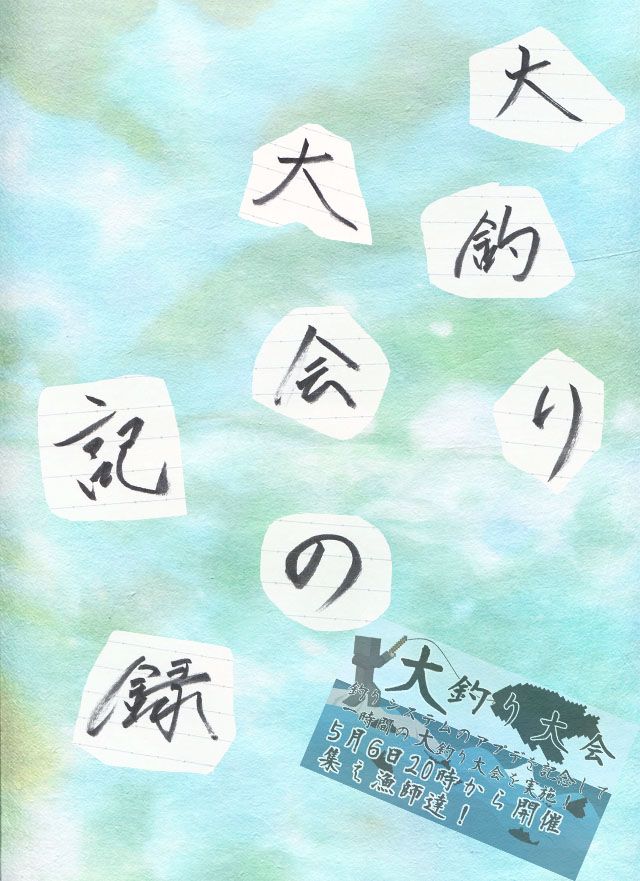 大釣り
大会の
記録
大釣り大会
釣りシステムのアプデを記念して
一時間の大釣り大会を実施！
5月6日20時から開催
集え漁師達！